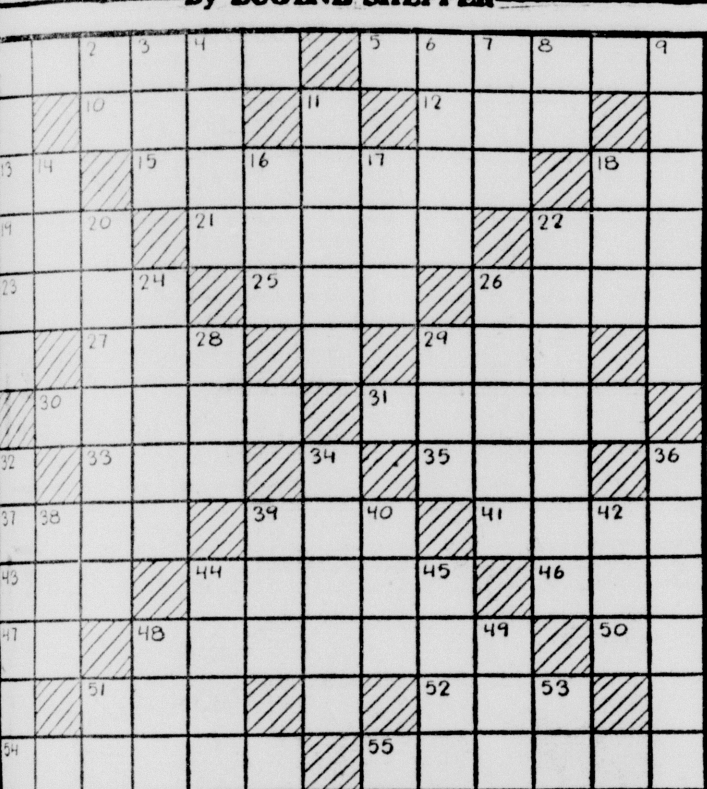 By EUGENE SHEFFER
2 3 4 5 6 7 8 9
10 11 12
13 14 15 16 17 18
19 20 21 22
23 24 25 26
27 28 29
30 31
32 33 34 35 36
37 38 39 40 41 42
43 44 45 46
47 48 49 50
51 52 53
54 55